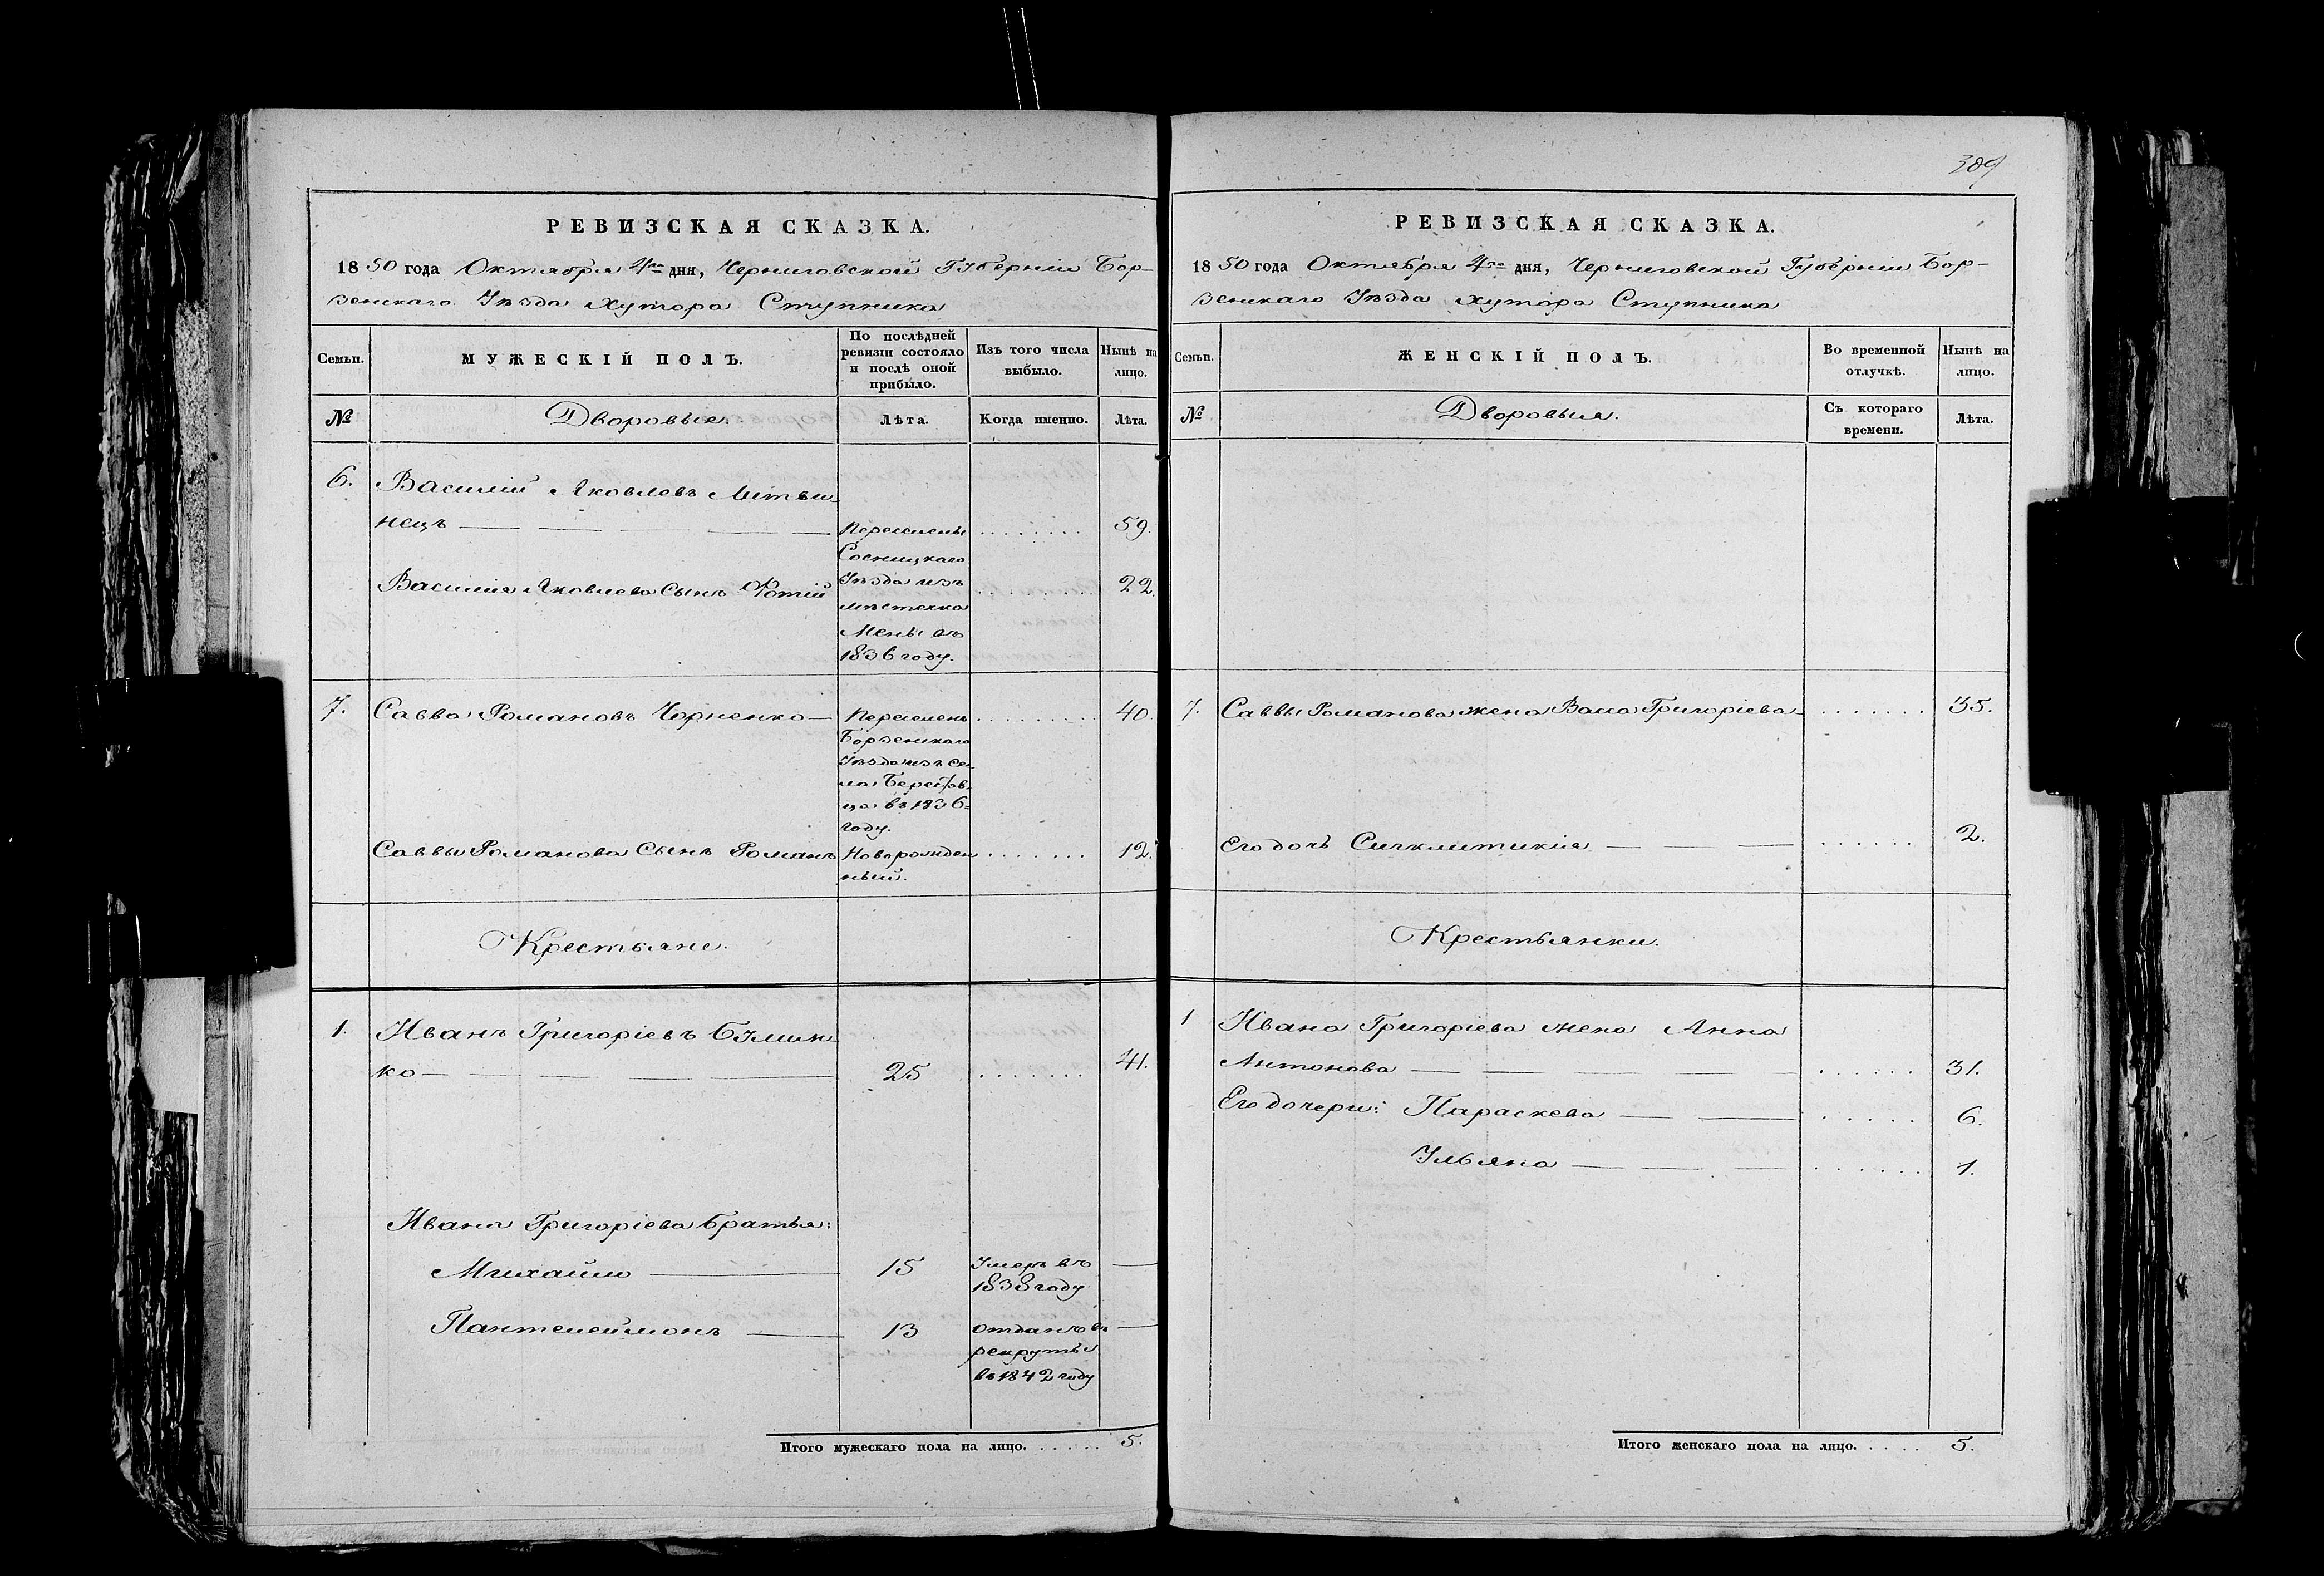 389
РЕВИЗСКАЯ СКАЗКА.
1850 года Октября 4го дня, Черниговской Губерніи Бор-
зенскаго Уѣзда хутора Ступника
Семьи.
МУЖЕСКІЙ ПОЛЪ.
По послѣдней
ревизіи состояло
и послѣ оной
прибыло.
Изъ того числа
выбыло.
Нынѣ на
лицо.
№
Дворовые.
Лѣта.
Когда именно.
Лѣта.
6. Василій Яковлевъ Литви
нецъ — Переселены . . . . . . . 59.
Сосницкаго
Василія Яковлева Сынъ Фотій Уѣзда изъ . . . . . . . 22.
мѣстечка
Мены въ
1836 году.
7. Савва Романовъ Чорненко — Переселенъ . . . . . . . . 40.
Борзенскаго
Уѣзда изъ се-
ла Берестов-
ца въ 1836-
году.
Саввы Романова Сынъ Романъ Новорожден . . . . . . . 12.
ный.
Крестьяне.
1. Иванъ Григоріевъ
ко — 25 . . . . . . . 41.
Ивана Григоріева братья:
Михайло — 15 Умеръ въ —
1838 году
Пантелеймонъ — 13 отданъ въ —
рекруты
въ 1842 году
Итого мужескаго пола на лицо. . . . . . . 5.
РЕВИЗСКАЯ СКАЗКА.
1850 года Октября 4го дня, Черниговской Губерніи Бор-
зенскаго Уѣзда хутора Ступника
Семьи.
ЖЕНСКІЙ ПОЛЪ.
Во временной
отлучкѣ.
Нынѣ на
лицо.
№
Дворовыя.
Съ котораго
времени.
Лѣта.
7. Саввы Романова жена Васса Григоріева . . . . . . . 35.
Его дочь Сигклитикія — . . . . . . 2.
Крестьянки.
1 Ивана Григоріева жена Анна
Антонова — . . . . . . 31.
Его дочери: Параскева — . . . . . 6.
Ульяна — . . . . . . 1.
Итого женскаго пола на лицо. . . . . 5.